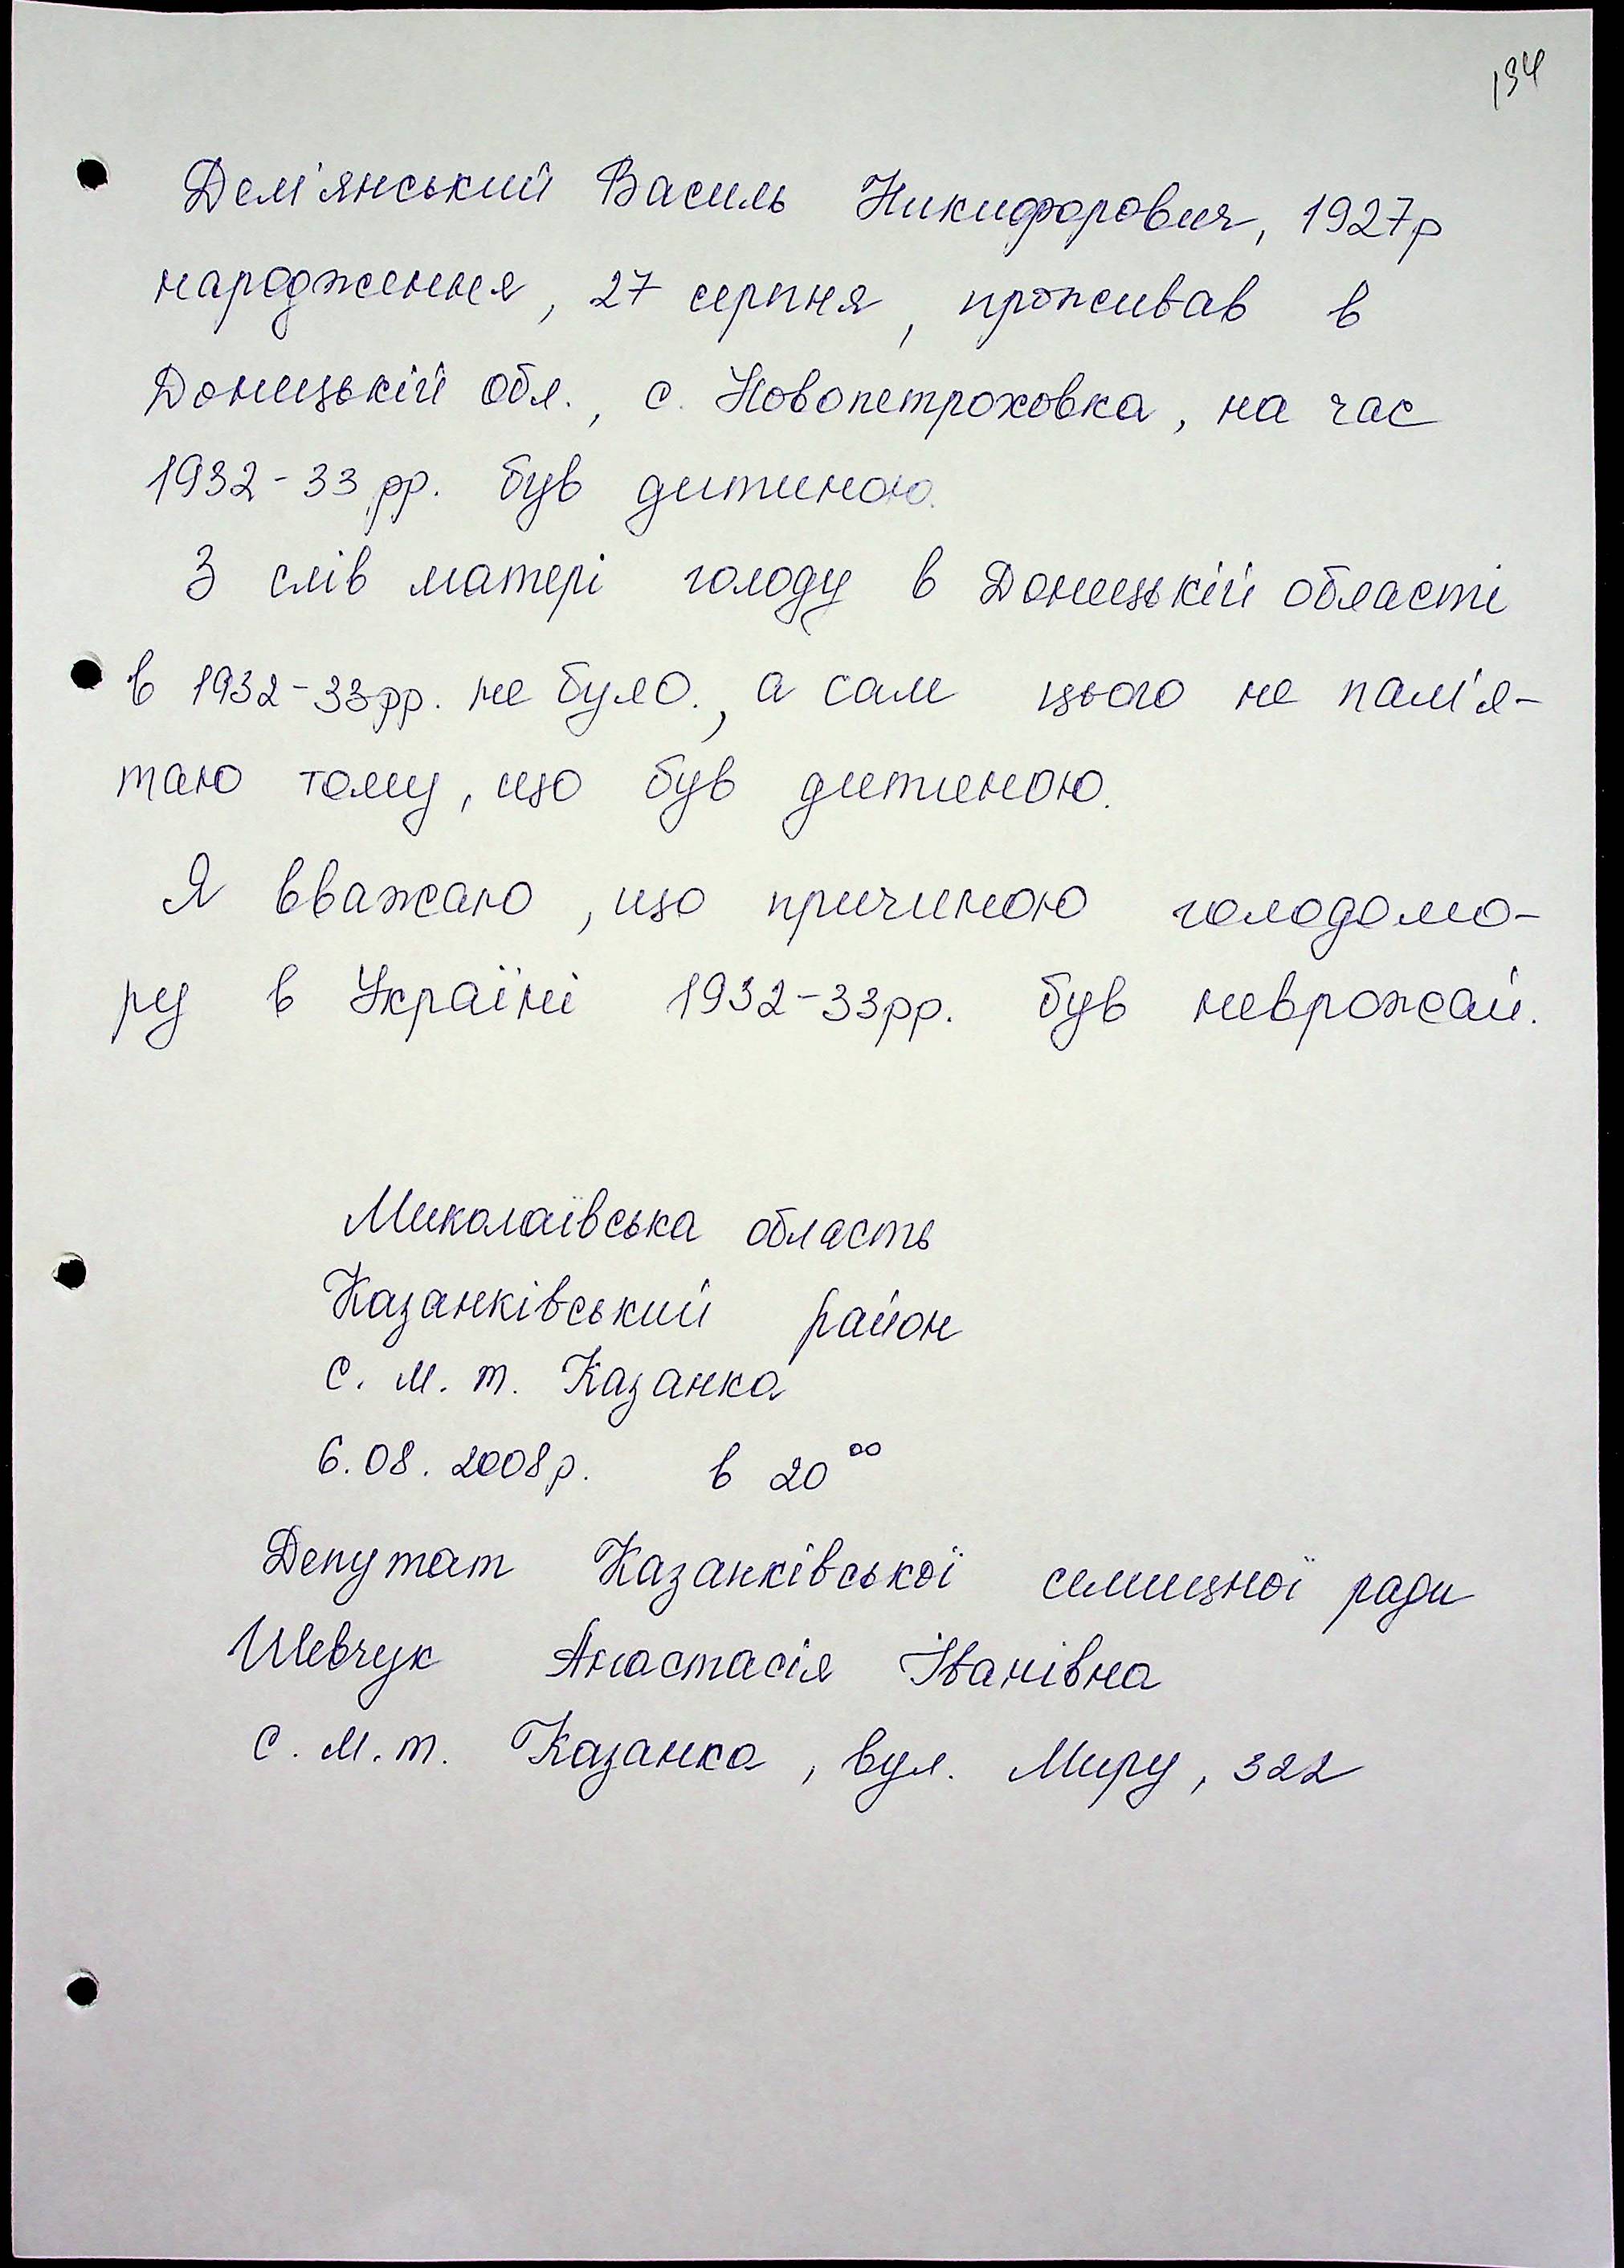 194
Дем'янський Василь Никифорович, 1927р
народження, 27 серпня, проживав в
Донецькій обл., с. Новопетроховка, на час
1932-33 рр. був дитиною.
З слів матері голоду в Донецькій області
в 1932-33рр. не було., а сам цього не пам'я-
таю тому, що був дитиною.
Я вважаю, що причиною голодомо-
ру в Україні 1932-33рр. був неврожай.
Миколаївська область
Казанківський район
С. м. т. Казанка
6.08.2008р. в 20⁰⁰
Депутат Казанківської селищної ради
Шевчук Анастасія Іванівна
С. м. т. Казанка, вул. Миру, 322